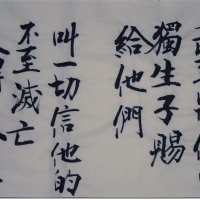 獨生子賜
給他們
叫一切信他的
不至滅亡